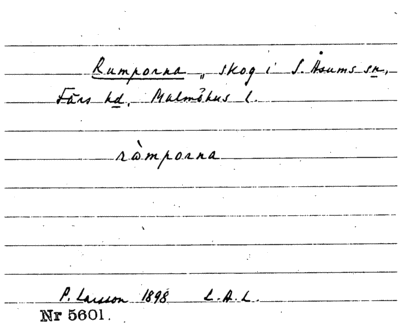 Rumporna „ skog i S. Åsums sn,
Färs hd, Malmöhus l.
ròmporna
P. Larsson 1898 L.A.L.
Nr 5601.